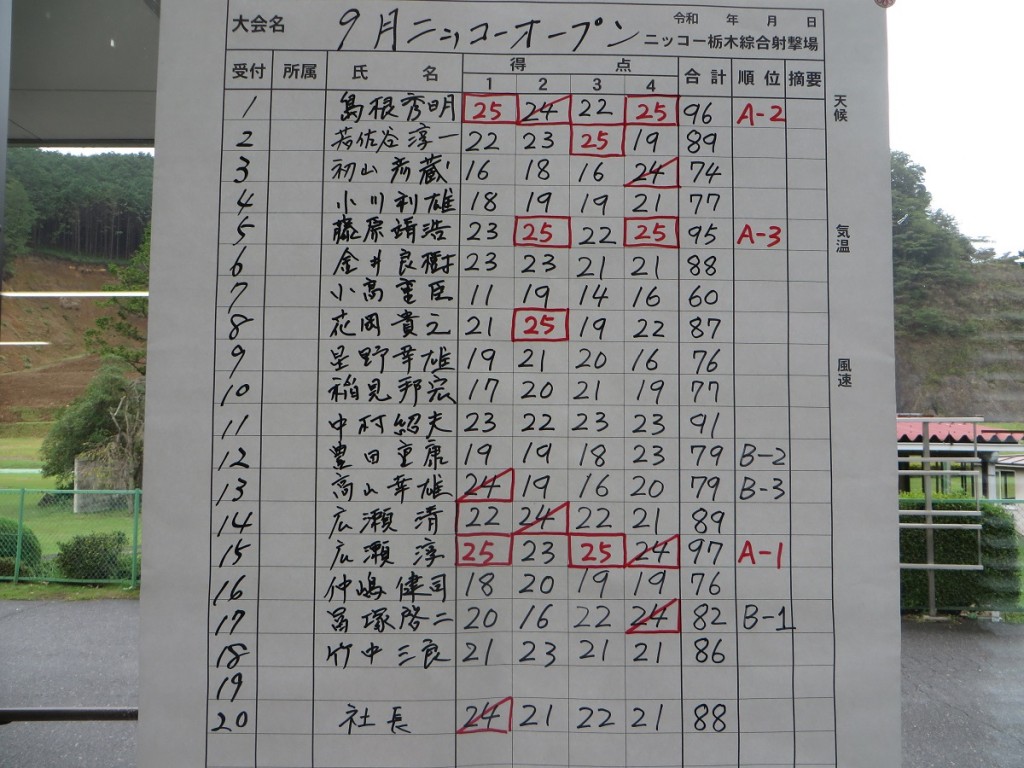 大会名 9月ニッコーオープン 令和 年 月 日
ニッコー栃木綜合射撃場
受付 所属 氏 名 得 点 合計 順位 摘要
1 2 3 4
1 島根秀明 25 24 22 25 96 A-2
2 若佐谷淳一 22 23 25 19 89
3 初山 蔵 16 18 16 24 74
4 小川利雄 18 19 19 21 77
5 藤原靖浩 23 25 22 25 95 A-3
6 金井良樹 23 23 21 21 88
7 小高重臣 11 19 14 16 60
8 花岡貴之 21 25 19 22 87
9 星野幸雄 19 21 20 16 76
10 稲見邦宏 17 20 21 19 77
11 中村紹夫 23 22 23 23 91
12 豊田重康 19 19 18 23 79 B-2
13 高山幸雄 24 19 16 20 79 B-3
14 広瀬 清 22 24 22 21 89
15 広瀬 淳 25 23 25 24 97 A-1
16 仲嶋健司 18 20 19 19 76
17 冨塚啓二 20 16 22 24 82 B-1
18 竹中三良 21 23 21 21 86
19
20 社長 24 21 22 21 88
天候
気温
風速